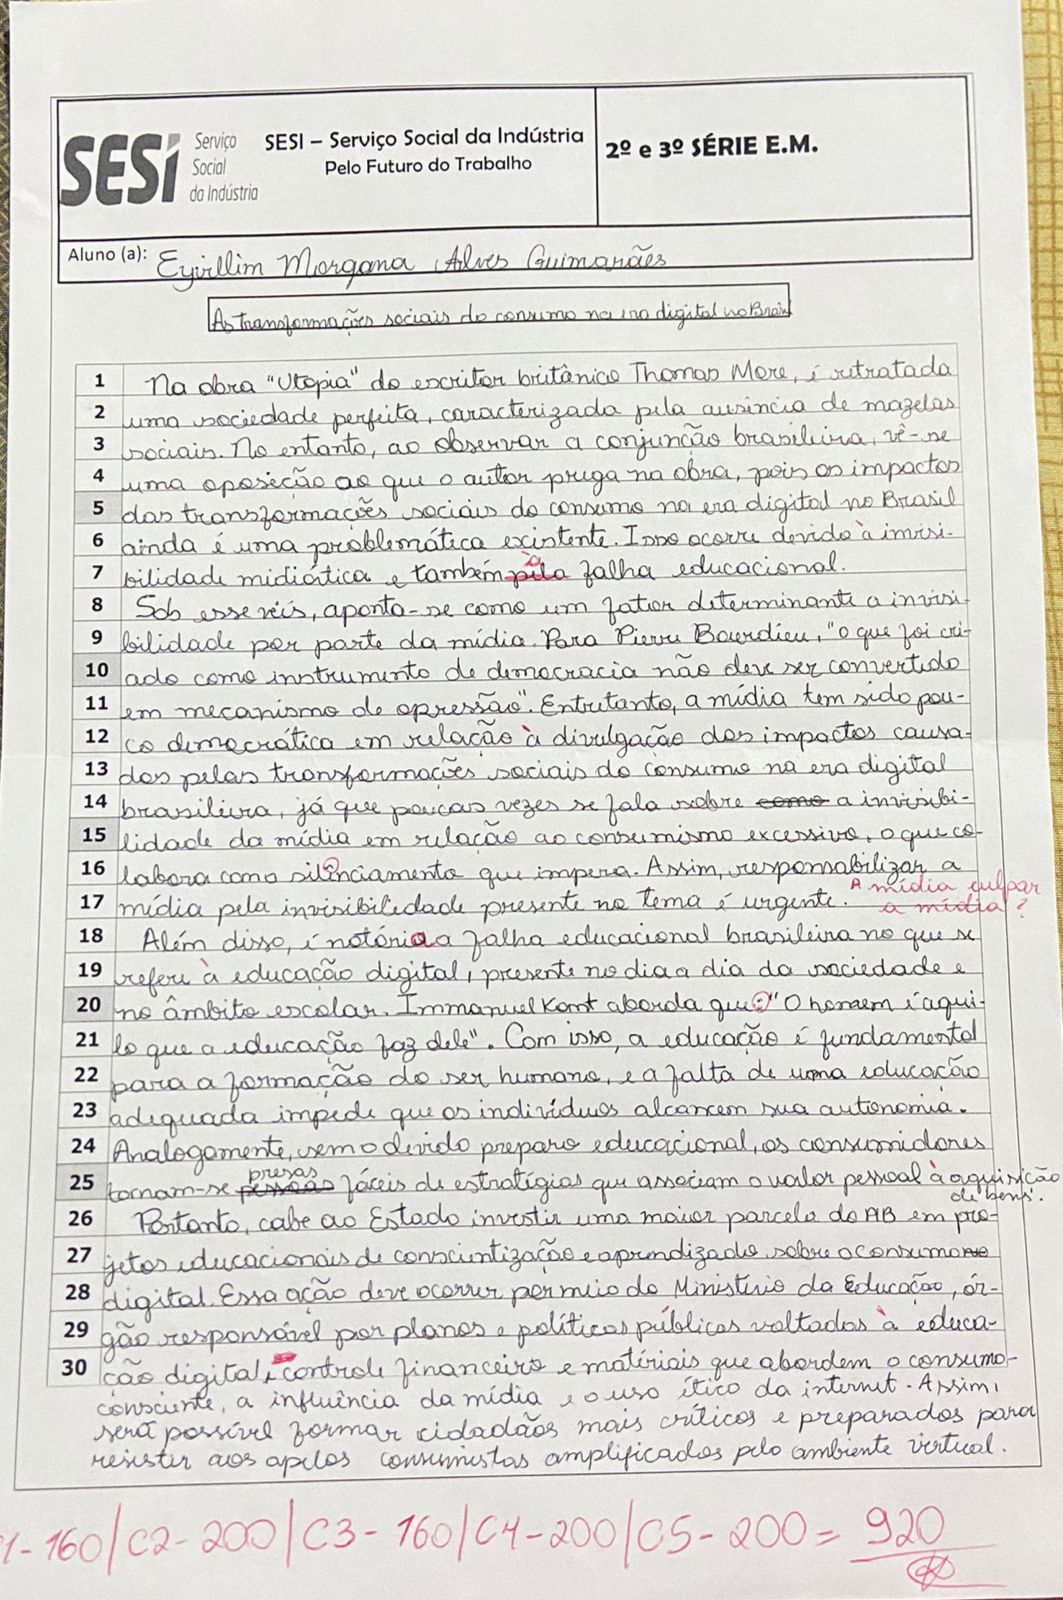 SESI Serviço Social da Indústria
SESI – Serviço Social da Indústria
Pelo Futuro do Trabalho
2º e 3º SÉRIE E.M.
Aluno (a): Eyirllim Morgana Alves Guimarães
As transformações sociais do consumo na era digital no Brasil
1 Na obra "Utopia" do escritor britânico Thomas More, é retratada
2 uma sociedade perfeita, caracterizada pela ausência de mazelas
3 sociais. No entanto, ao observar a conjunção brasileira, vê-se
4 uma oposeção ao que o autor prega na obra, pois os impactos
5 das transformações sociais do consumo na era digital no Brasil
6 ainda é uma problemática existente. Isso ocorre devido à invisi-
7 bilidade midiática e também pela à falha educacional.
8 Sob esse véis, aponta-se como um fator determinante a invisi-
9 bilidade por parte da mídia. Para Pierre Bourdieu, "o que foi cri-
10 ado como instrumento de democracia não deve ser convertido
11 em mecanismo de opressão". Entretanto, a mídia tem sido pou-
12 co democrática em relação à divulgação dos impactos causa-
13 dos pelas transformações sociais do consumo na era digital
14 brasileira, já que poucas vezes se fala sobre como a invisibi-
15 lidade da mídia em relação ao consumismo excessivo, o que co-
16 labora como silênciamento que impera. Assim, responsabilizar a
17 mídia pela invisibilidade presente no tema é urgente. A mídia culpar
a mídia?
18 Além disso, é notória a falha educacional brasileira no que se
19 refere à educação digital, presente no dia a dia da sociedade e
20 no âmbito escolar. Immanuel Kant aborda que: "O homem é aqui-
21 lo que a educação faz dele". Com isso, a educação é fundamental
22 para a formação do ser humano, e a falta de uma educação
23 adequada impede que os indivíduos alcancem sua autonomia.
24 Analogamente, sem o devido preparo educacional, os consumidores
25 tornam-se pessoas presas fáceis de estratégias que associam o valor pessoal à aquisição
de bens.
26 Portanto, cabe ao Estado investir uma maior parcela do AB em pro-
27 jetos educacionais de conscientização e aprendizado sobre o consumo no
28 digital. Essa ação deve ocorrer por meio do Ministério da Educação, ór-
29 gão responsável por planos e políticas públicas voltados à educa-
30 ção digital, controle financeiro e matériais que abordem o consumo
consciente, a influência da mídia e o uso ético da internet. Assim,
será possível formar cidadãos mais críticos e preparados para
resistir aos apelos consumistas amplificados pelo ambiente vertical.
1-160/C2-200/C3-160/C4-200/C5-200=920